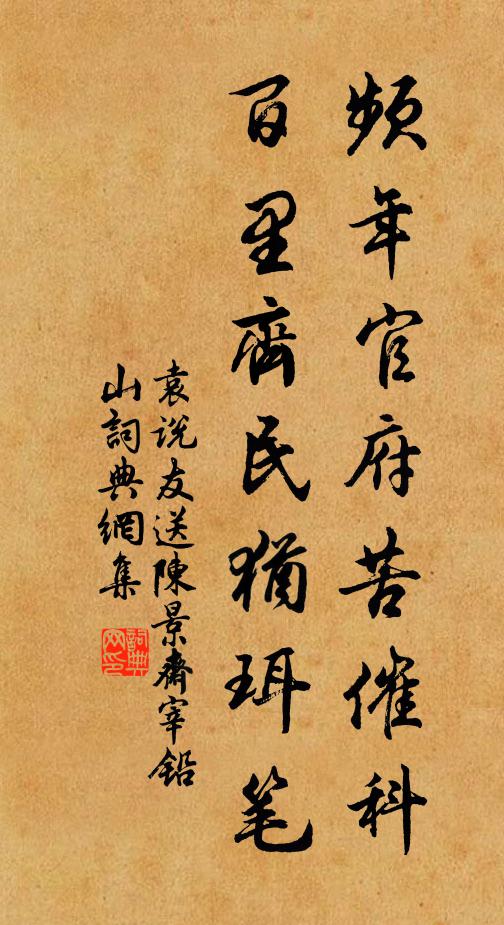 頻年官府苦催科
百里齊民猶珥笔
袁说友送陳景齋宰鉛
山詞典網集
詞典
网印